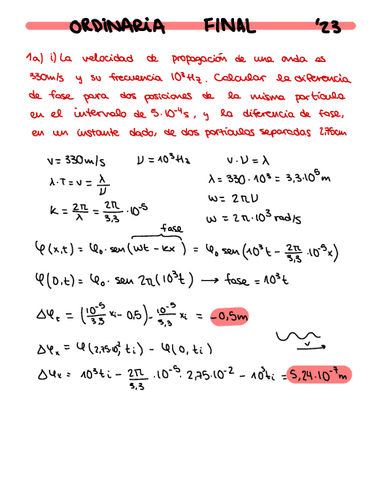 ORDINARIA FINAL '23
1a) i) La velocidad de propagación de una onda es
330m/s y su frecuencia 10³Hz. Calcular la diferencia
de fase para dos posiciones de la misma partícula
en el intervalo de 5·10⁻⁴s, y la diferencia de fase,
en un instante dado, de dos partículas separadas 2,75cm
v = 330m/s ν = 10³Hz v·ν = λ
λ·T = v = λ/ν λ = 330·10³ = 3,3·10⁵m
k = 2π/λ = 2π/3,3 ·10⁻⁵ ω = 2πν
ω = 2π·10³ rad/s
fase
φ(x,t) = φ₀·sen(ωt - kx) = φ₀sen(10³t - 2π/3,3 ·10⁻⁵x)
φ(0,t) = φ₀·sen 2π(10³t) → fase = 10³t
Δφt = (10⁻⁵/3,3 xi - 0,5) - 10⁻⁵/3,3 xi = -0,5m
Δφx = φ(2,75·10⁻², ti) - φ(0, ti)
v
Δφx = 10³ti - 2π/3,3 ·10⁻⁵·2,75·10⁻² - 10³ti = 5,24·10⁻⁷m